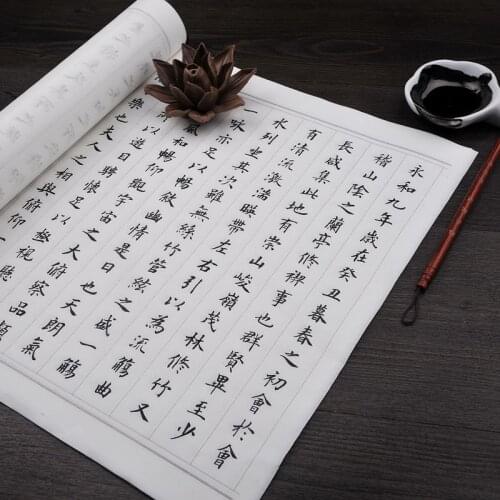 永和九年歲在癸丑暮春之初會於會
稽山陰之蘭亭修禊事也群賢畢至少
長咸集此地有崇山峻嶺茂林修竹又
有清流激湍映帶左右引以為流觴曲
水列坐其次雖無絲竹管絃之盛一觴
一詠亦足以暢敘幽情是日也天朗氣
風和暢仰觀宇宙之大俯察品類
以遊目騁懷足以極視聽
樂也夫人之相與俯仰一